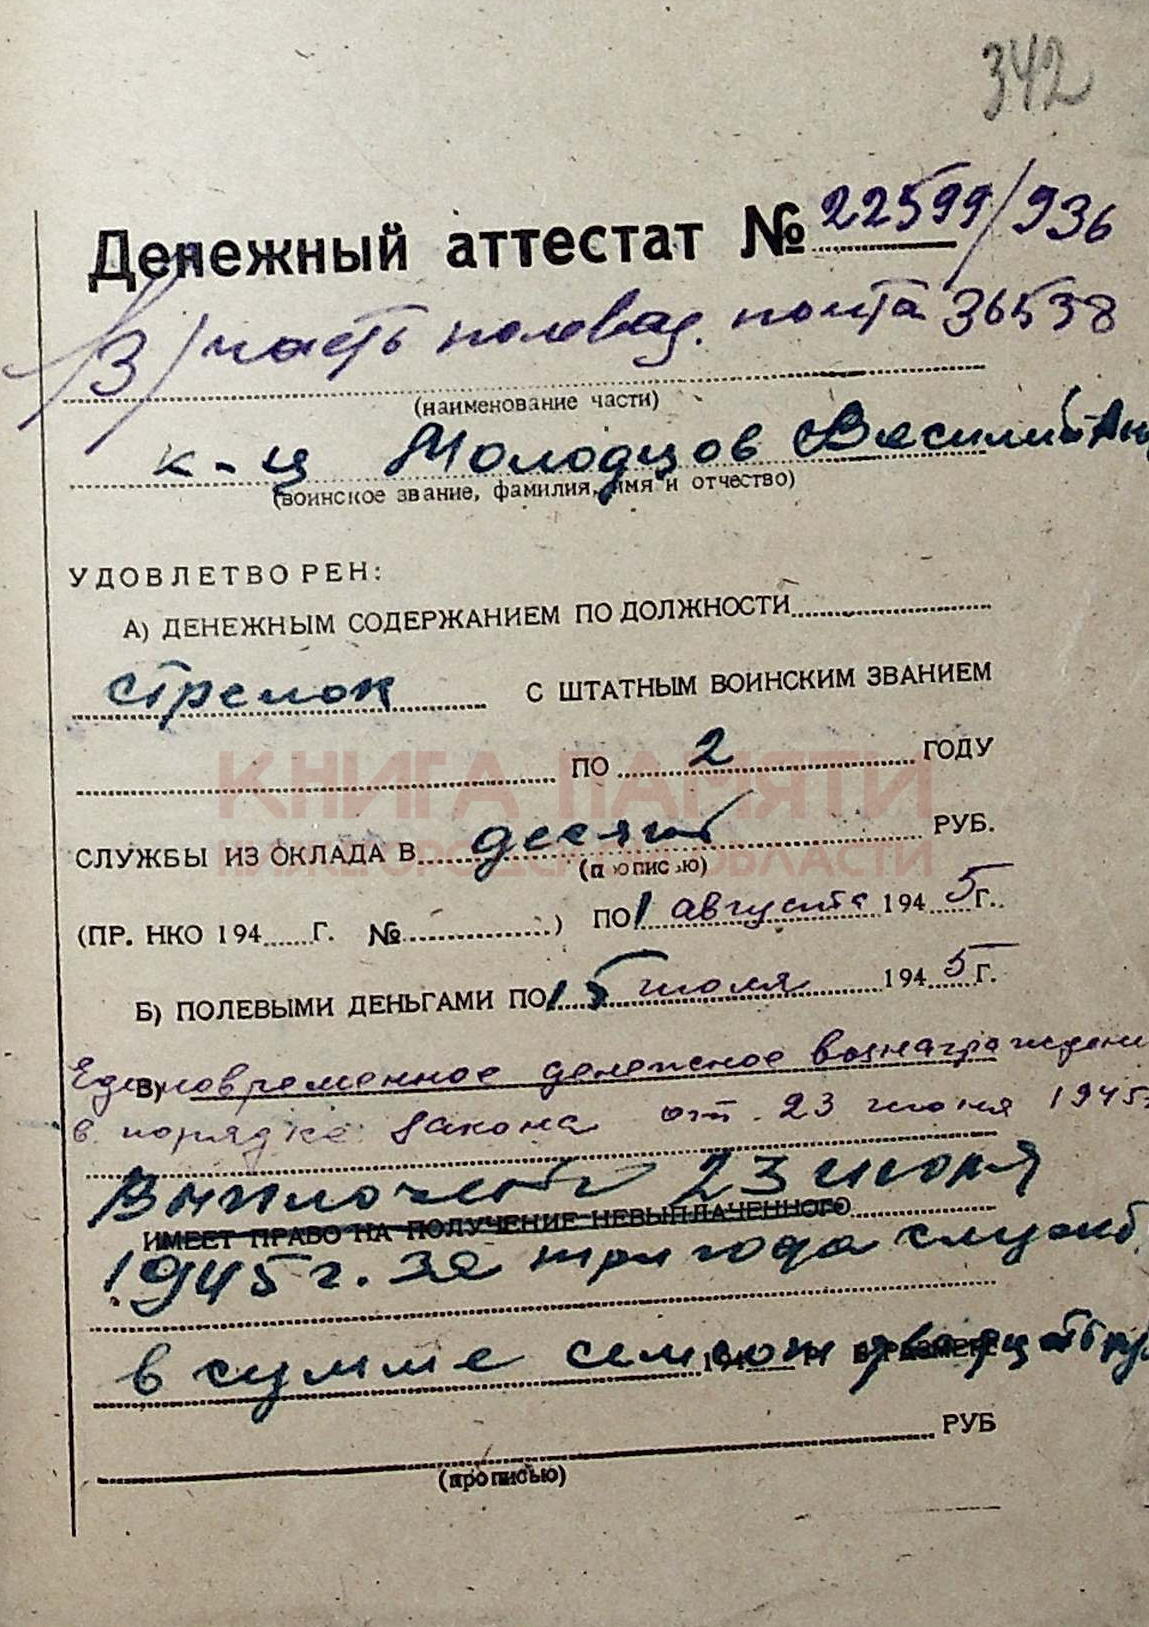 342
Денежный аттестат № 22599/936
В/часть полевая. почта 36538
(наименование части)
к-ц Молодцов Василий Ан
(воинское звание, фамилия, имя и отчество)
УДОВЛЕТВОРЕН:
А) ДЕНЕЖНЫМ СОДЕРЖАНИЕМ ПО ДОЛЖНОСТИ
стрелок С ШТАТНЫМ ВОИНСКИМ ЗВАНИЕМ
ПО 2 ГОДУ
КНИГА ПАМЯТИ
СЛУЖБЫ ИЗ ОКЛАДА В десять РУБ.
НИЖЕГОРОДСКОЙ ОБЛАСТИ
(прописью)
(ПР. НКО 194 Г. № ) ПО 1 августа 1945 Г.
Б) ПОЛЕВЫМИ ДЕНЬГАМИ ПО 15 июля 1945 Г.
В) Единовременное денежное вознагражден
в порядке закона от 23 июня 1945
Выплочено 23 июня
ИМЕЕТ ПРАВО НА ПОЛУЧЕНИЕ НЕВЫПЛАЧЕННОГО
1945 г. за три года служб
в сумме семсот двадцать ру
194 Г. В РАЗМЕРЕ
РУБ
(прописью)